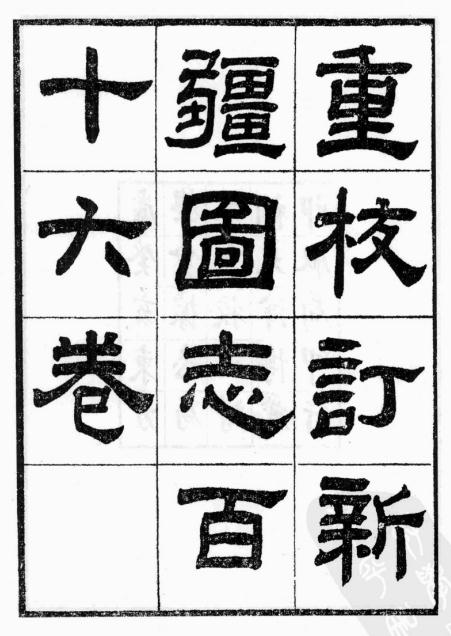 重校訂新
疆圖志百
十六卷